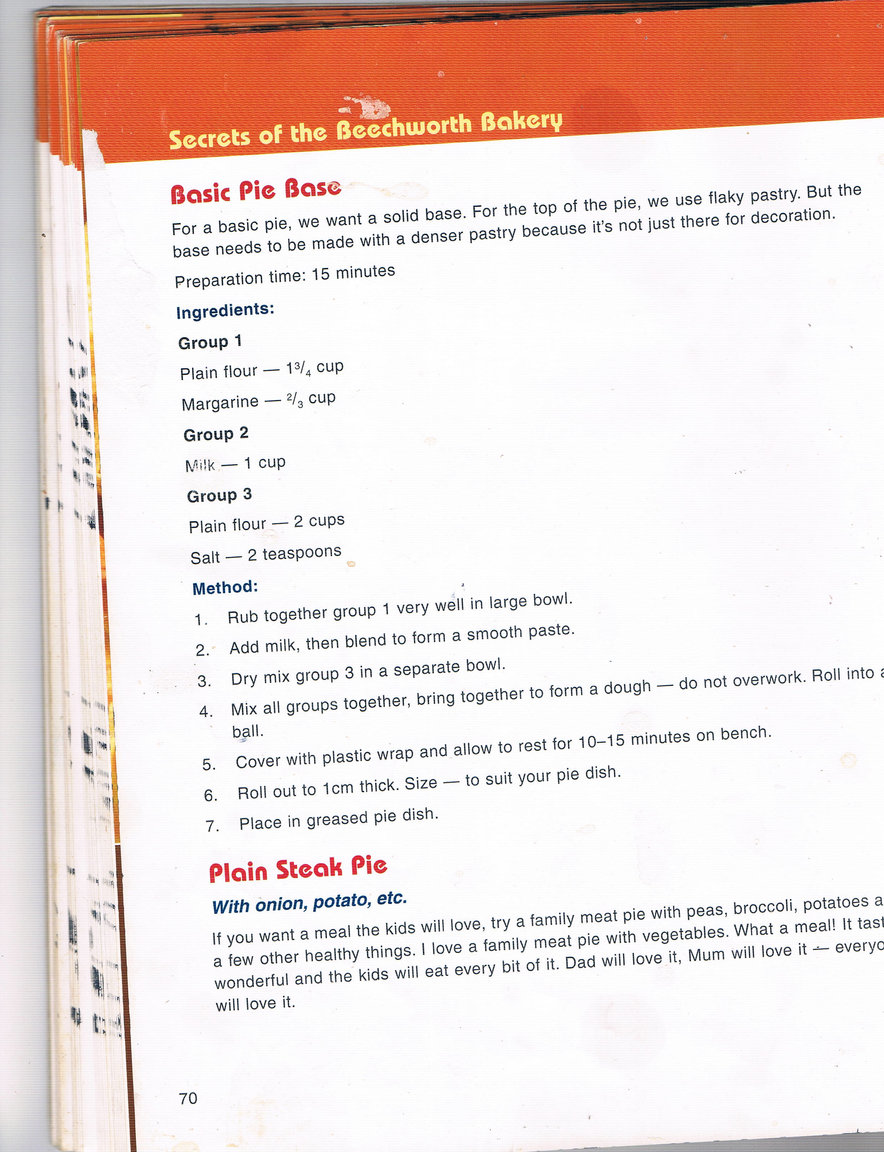 Secrets of the Beechworth Bakery
Basic Pie Base
For a basic pie, we want a solid base. For the top of the pie, we use flaky pastry. But the
base needs to be made with a denser pastry because it's not just there for decoration.
Preparation time: 15 minutes
Ingredients:
Group 1
Plain flour — 1³/₄ cup
Margarine — ²/₃ cup
Group 2
Milk — 1 cup
Group 3
Plain flour — 2 cups
Salt — 2 teaspoons
Method:
1. Rub together group 1 very well in large bowl.
2. Add milk, then blend to form a smooth paste.
3. Dry mix group 3 in a separate bowl.
4. Mix all groups together, bring together to form a dough — do not overwork. Roll into a
ball.
5. Cover with plastic wrap and allow to rest for 10–15 minutes on bench.
6. Roll out to 1cm thick. Size — to suit your pie dish.
7. Place in greased pie dish.
Plain Steak Pie
With onion, potato, etc.
If you want a meal the kids will love, try a family meat pie with peas, broccoli, potatoes a
a few other healthy things. I love a family meat pie with vegetables. What a meal! It tast
wonderful and the kids will eat every bit of it. Dad will love it, Mum will love it — everyo
will love it.
70